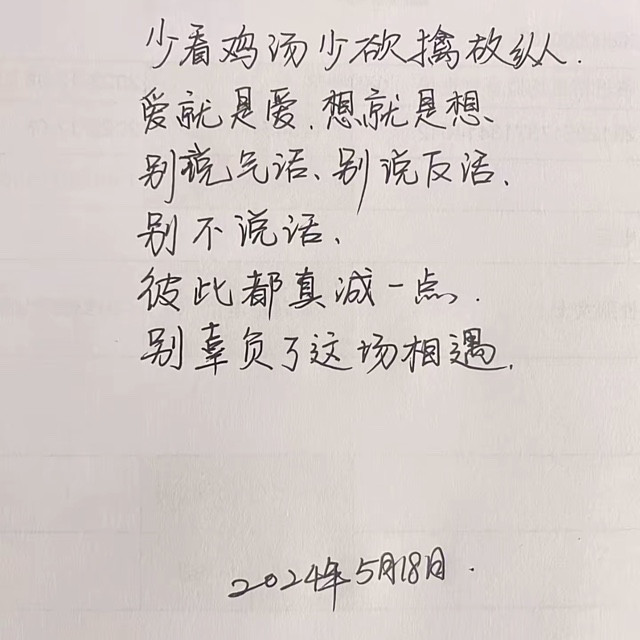 少看鸡汤少欲擒故纵.
爱就是爱 想就是想、
别说气话、别说反话、
别不说话、
彼此都真减一点.
别辜负了这场相遇.
2024年5月18日.